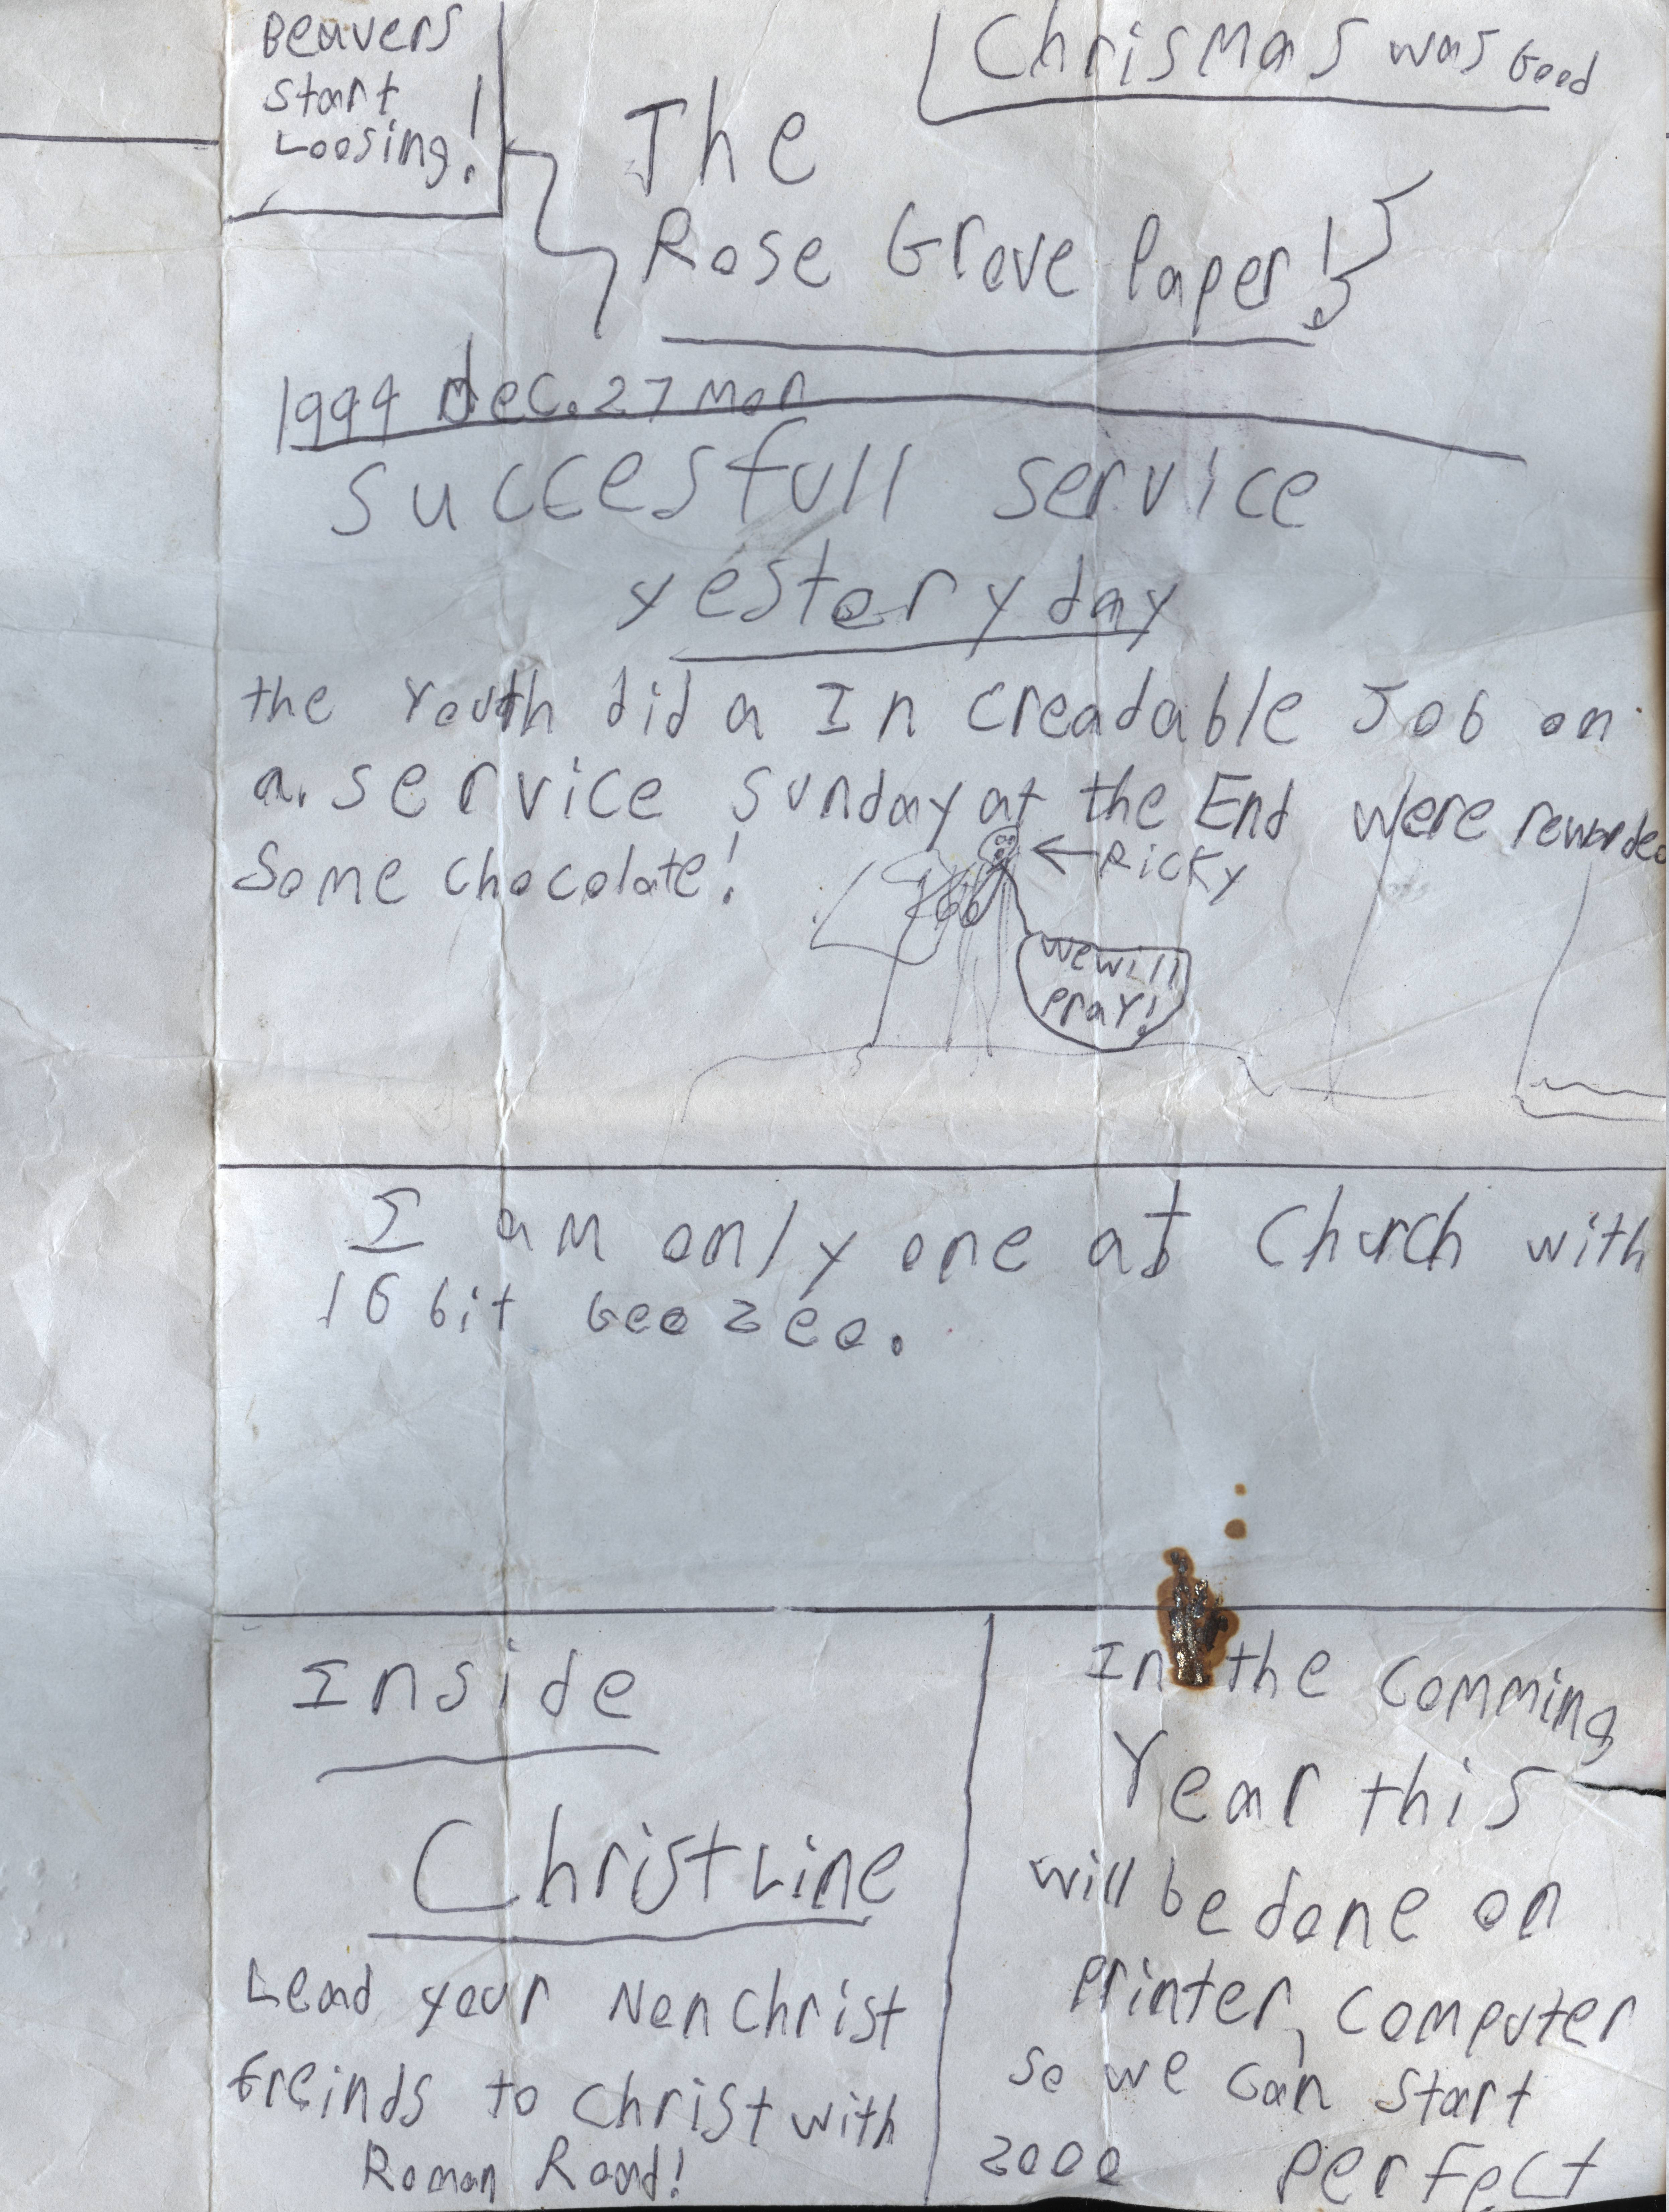 Beavers
Start
Loosing!
Chrismas was Good
The
Rose Grove Paper!
1994 dec. 27 Mon
Succesfull service
yesteryday
the Youth did a In creadable Job on
a. service Sunday at the End were rewarded
Some chocolate!
← Ricky
we will
pray!
I am only one at Church with
16 bit Geo zeo.
Inside
Christ Line
Lead your Non Christ
freinds to Christ with
Roman Road!
In the Comming
Year this
will be done on
printer, Computer
so we can start
2000 perfect